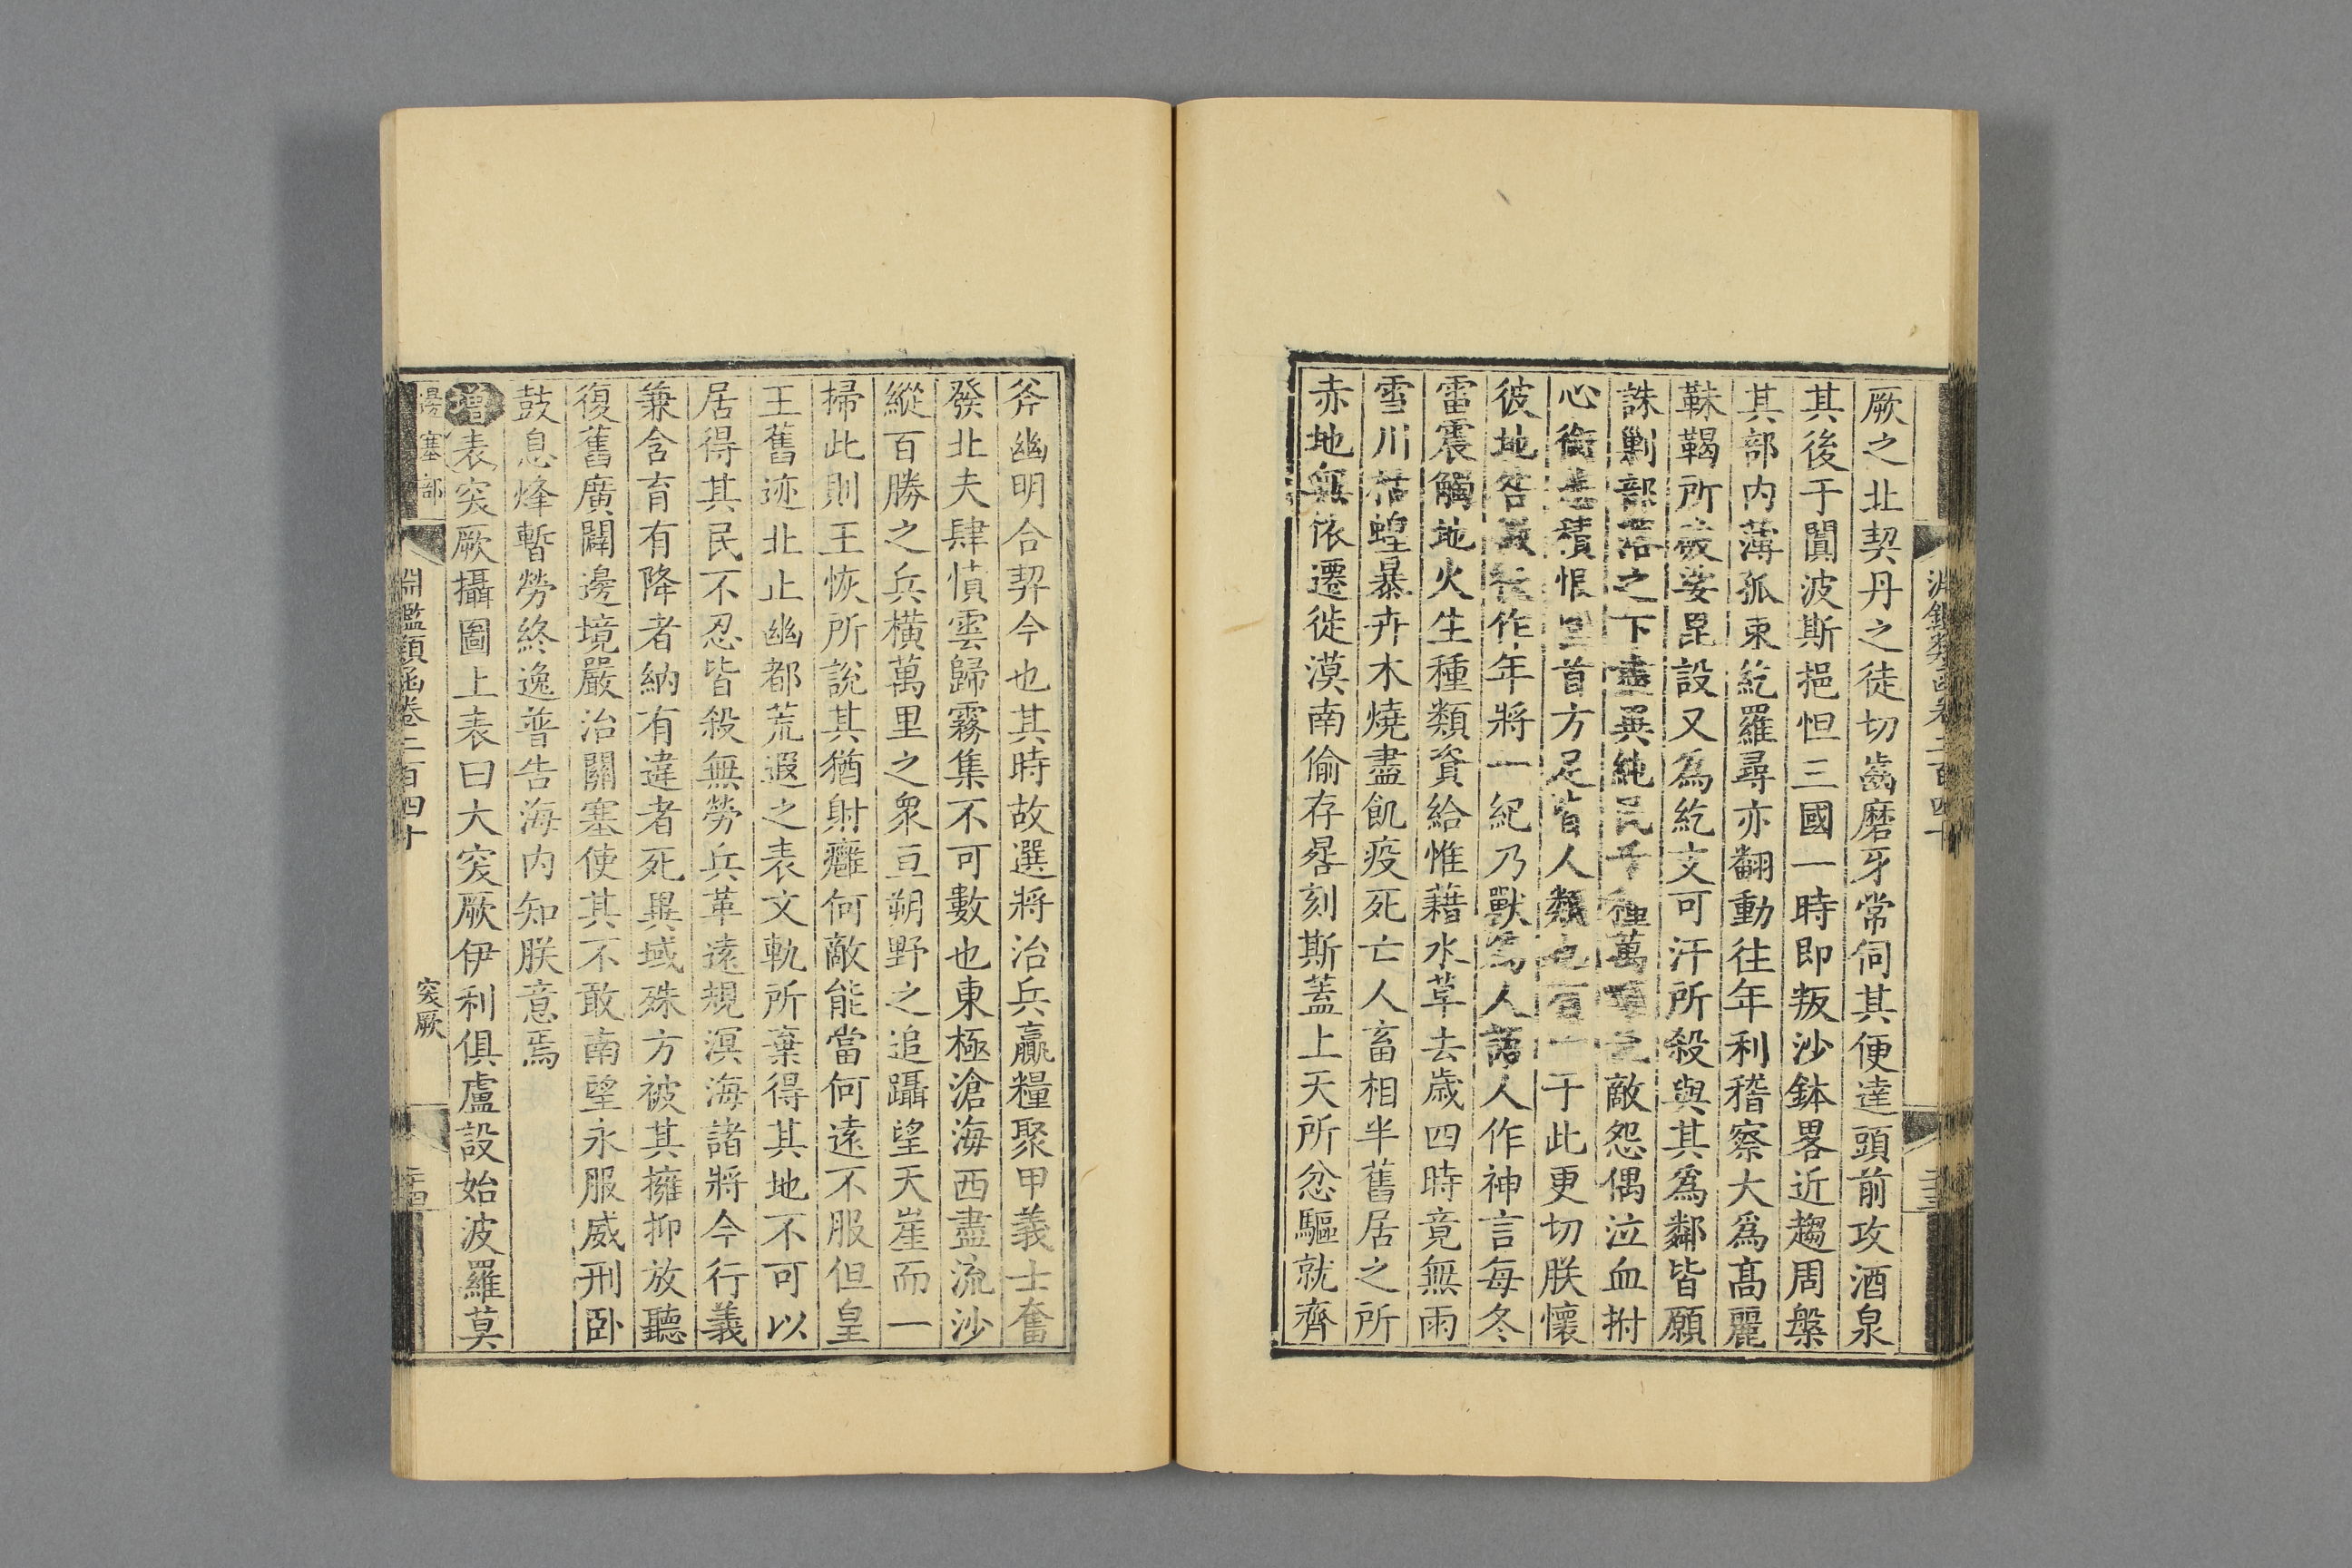 淵鑑類函卷二百四十
厥之北契丹之徒切齒磨牙常伺其便達頭前攻酒泉
其後于闐波斯挹怛三國一時即叛沙鉢畧近趨周槃
其部内薄孤東紇羅尋亦翻動往年利稽察大為髙麗
靺鞨所破娑毘設又為紇支可汗所殺與其為鄰皆願
誅剿部落之下盡異純民千種萬類之敵怨偶泣血拊
心銜悲積恨圓首方足皆人類也有一于此更切朕懷
彼地咎徵妖作年將一紀乃獸為人語人作神言每冬
雷震觸地火生種類資給惟藉水草去歲四時竟無雨
雪川枯蝗暴卉木燒盡飢疫死亡人畜相半舊居之所
赤地無依遷徙漠南偷存晷刻斯蓋上天所忿驅就齊
斧幽明合契今也其時故選將治兵贏糧聚甲義士奮
發北夫肆憤雲歸霧集不可數也東極滄海西盡流沙
縱百勝之兵橫萬里之衆亘朔野之追躡望天崖而一
掃此則王恢所說其猶射癰何敵能當何遠不服但皇
王舊迹北止幽都荒遐之表文軌所棄得其地不可以
居得其民不忍皆殺無勞兵革遠規溟海諸將今行義
兼含育有降者納有違者死異域殊方被其擁抑放聽
復舊廣闢邊境嚴治關塞使其不敢南望永服威刑卧
鼓息烽暫勞終逸普告海内知朕意焉
增表突厥攝圖上表曰大突厥伊利俱盧設始波羅莫
邊塞部
淵鑑類函卷二百四十
突厥